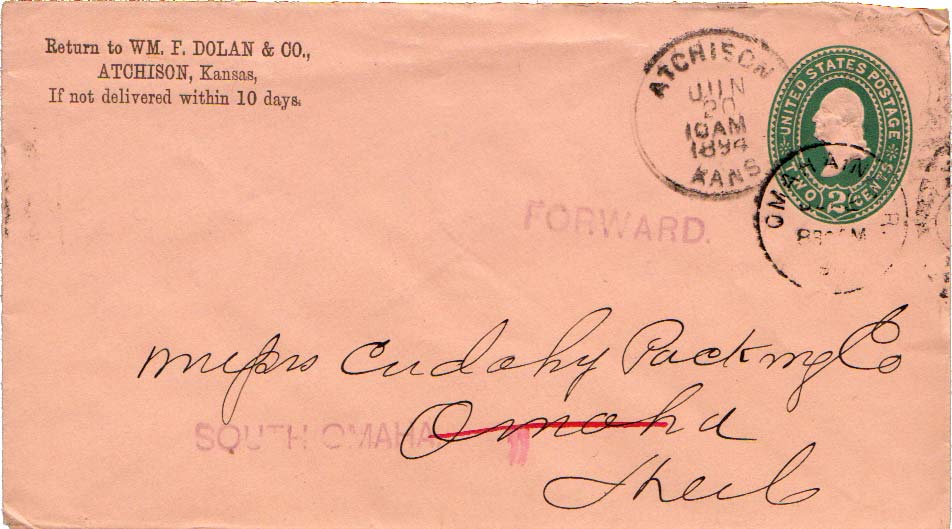 Return to WM. F. DOLAN & CO.,
ATCHISON, Kansas,
If not delivered within 10 days.
ATCHISON
JUN
20
10AM
1894
KANS
UNITED STATES POSTAGE
TWO 2 CENTS
OMAHA
FORWARD.
Messrs Cudahy Packing Co
SOUTH OMAHA
Omaha
Neb